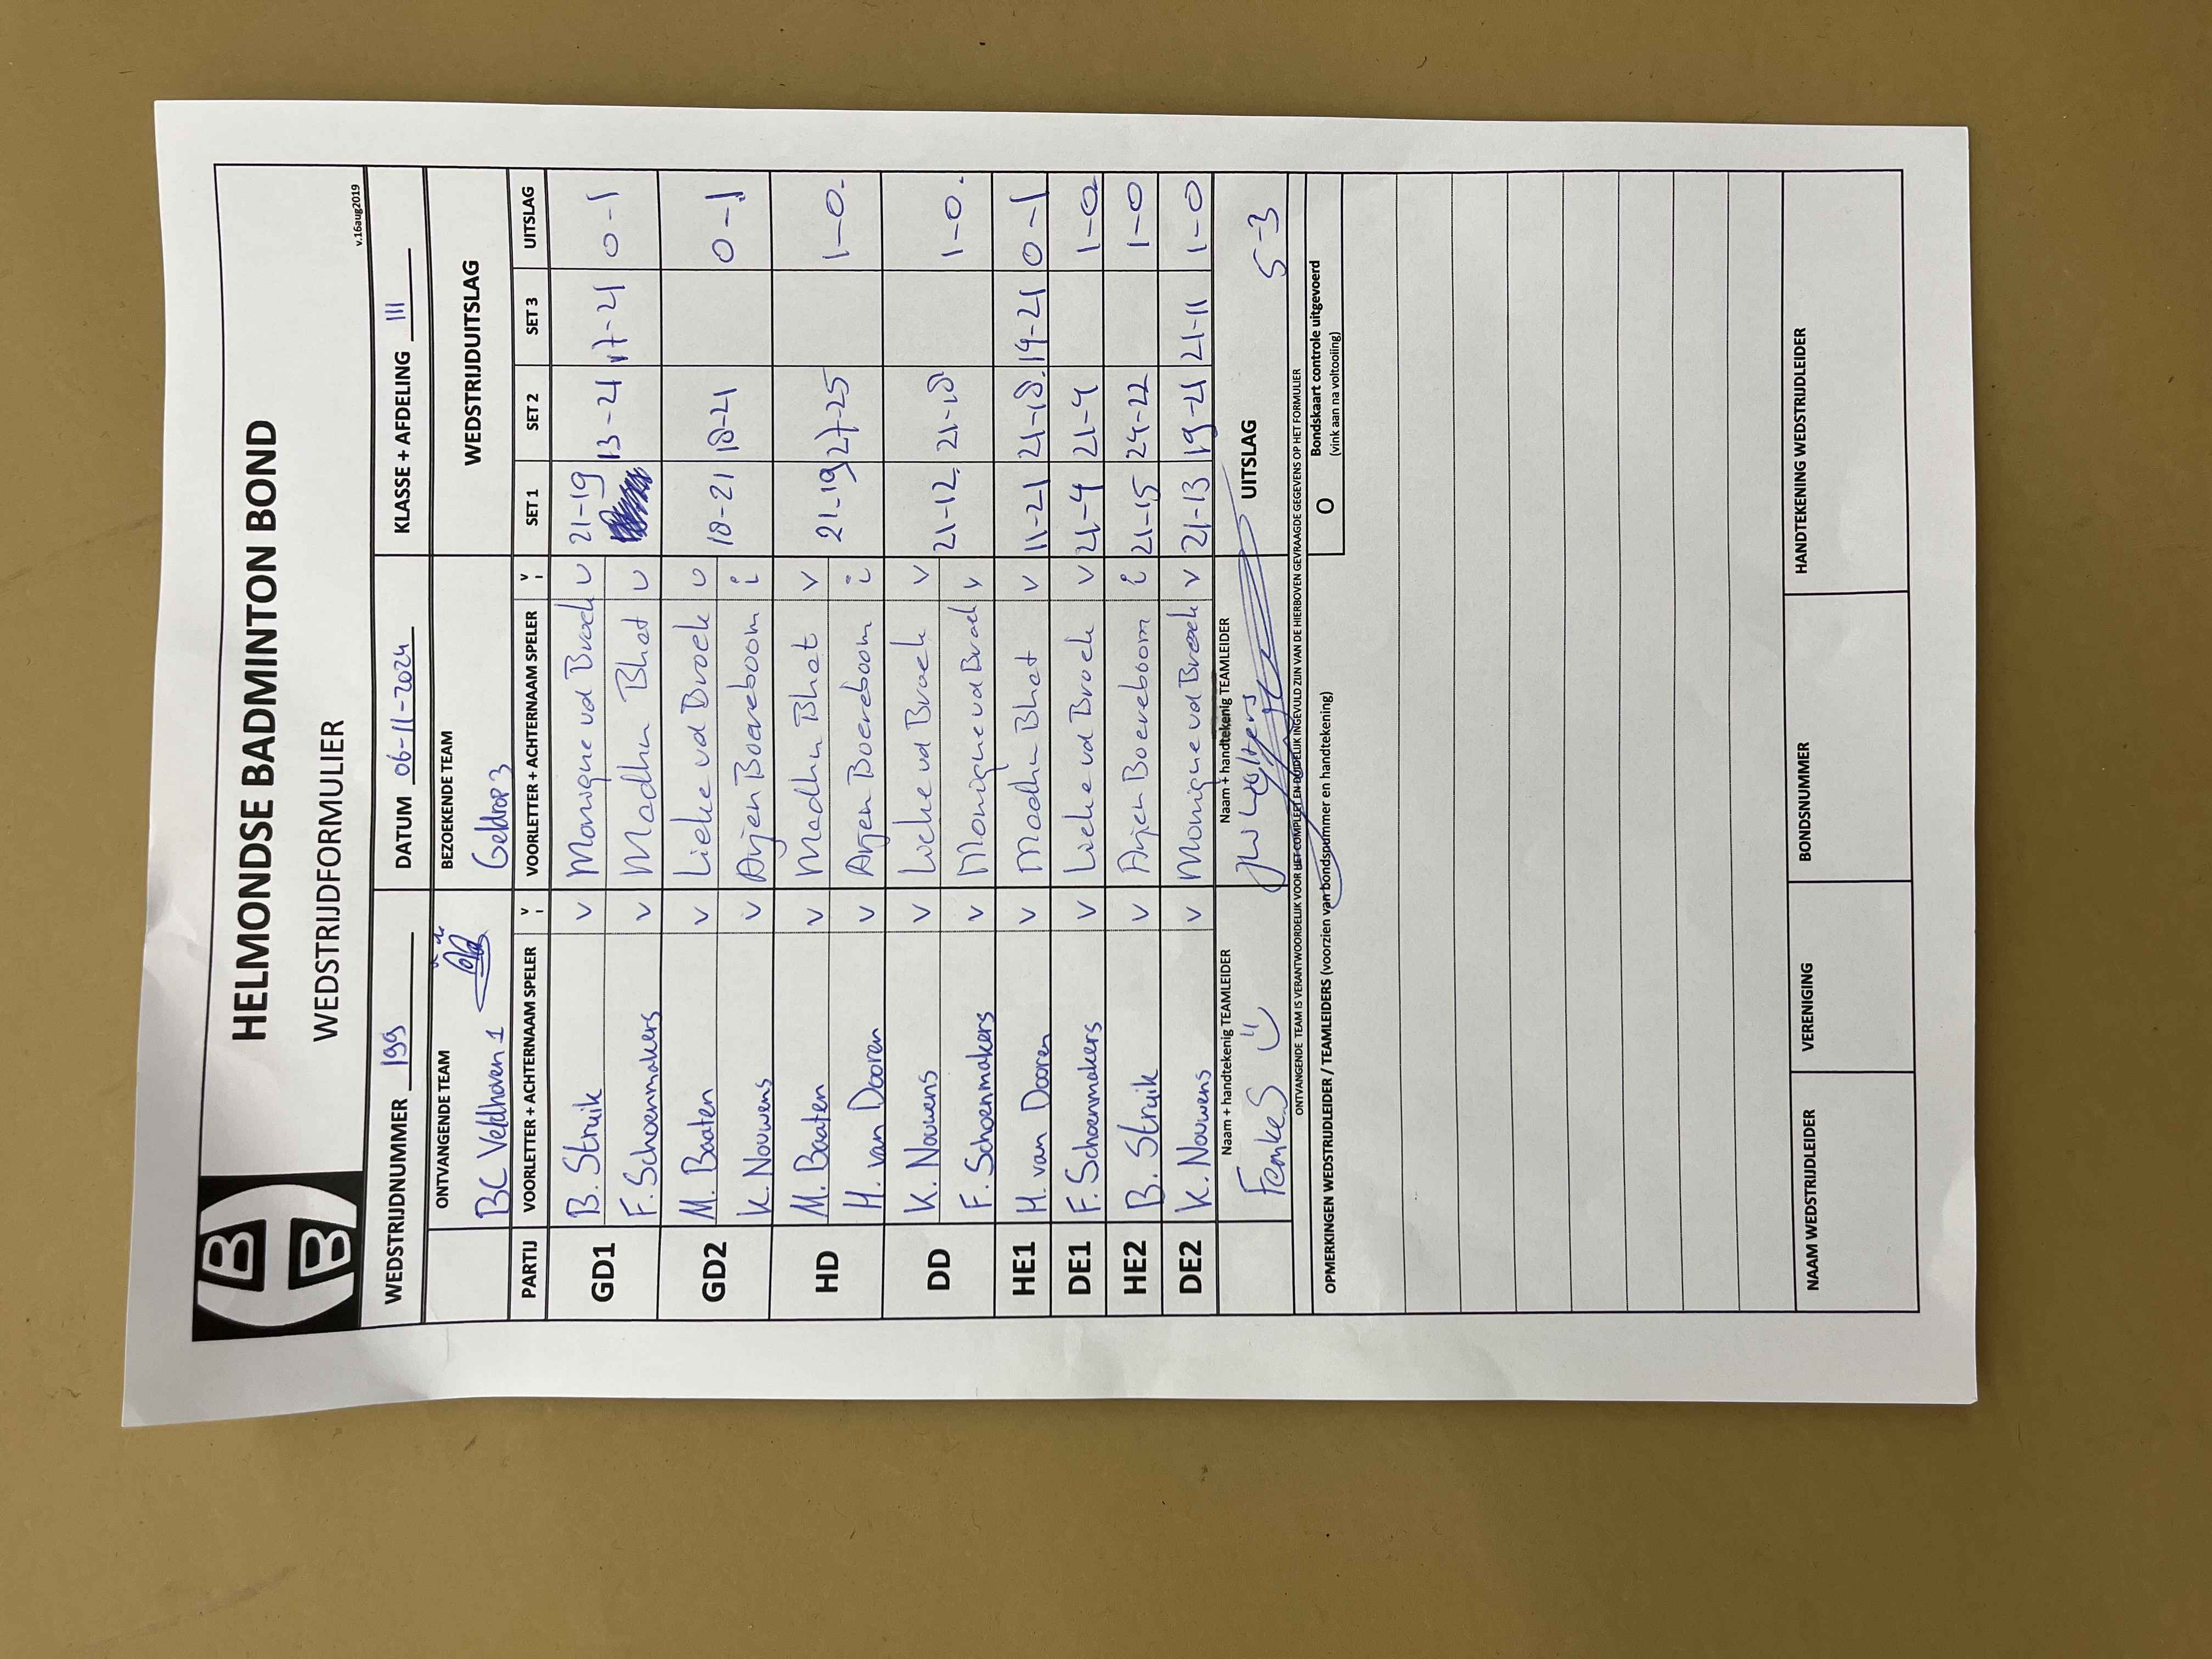 B B
HELMONDSE BADMINTON BOND
WEDSTRIJDFORMULIER
v.16aug2019
WEDSTRIJDNUMMER 199 DATUM 06-11-2024 KLASSE + AFDELING III
ONTVANGENDE TEAM BEZOEKENDE TEAM WEDSTRIJDUITSLAG
BC Veldhoven 1 Geldrop 3
PARTIJ VOORLETTER + ACHTERNAAM SPELER V I VOORLETTER + ACHTERNAAM SPELER V I SET 1 SET 2 SET 3 UITSLAG
GD1 B. Struik v Monique vd Broek v 21-19 13-21 17-21 0-1
F. Schoenmakers v Madhu Bhat v
GD2 M. Baaten v Lieke vd Broek v 18-21 18-21 0-1
K. Nouwens v Arjen Boereboom i
HD M. Baaten v Madhu Bhat v 21-19 27-25 1-0.
H. van Dooren v Arjen Boereboom i
DD K. Nouwens v Lieke vd Broek v 21-12. 21-18 1-0.
F. Schoenmakers v Monique vd Broek v
HE1 H. van Dooren v Madhu Bhat v 11-21 21-18. 19-21 0-1
DE1 F. Schoenmakers v Lieke vd Broek v 21-4 21-4 1-0
HE2 B. Struik v Arjen Boereboom i 21-15 24-22 1-0
DE2 K. Nouwens v Monique vd Broek v 21-13 19-21 21-11 1-0
Naam + handtekenig TEAMLEIDER Naam + handtekenig TEAMLEIDER UITSLAG 5-3
Femke S
ONTVANGENDE TEAM IS VERANTWOORDELIJK VOOR HET COMPLEET EN DUIDELIJK INGEVULD ZIJN VAN DE HIERBOVEN GEVRAAGDE GEGEVENS OP HET FORMULIER
OPMERKINGEN WEDSTRIJDLEIDER / TEAMLEIDERS (voorzien van bondsnummer en handtekening) O Bondskaart controle uitgevoerd
(vink aan na voltooiing)
NAAM WEDSTRIJDLEIDER VERENIGING BONDSNUMMER HANDTEKENING WEDSTRIJDLEIDER